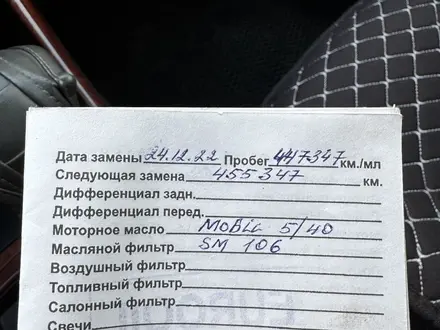 Дата замены 24.12.22 Пробег 447347 км./мл
Следующая замена 455347 км.
Дифференциал задн.
Дифференциал перед.
Моторное масло MOBIL 5/40
Масляной фильтр SM 106
Воздушный фильтр
Топливный фильтр
Салонный фильтр
Свечи